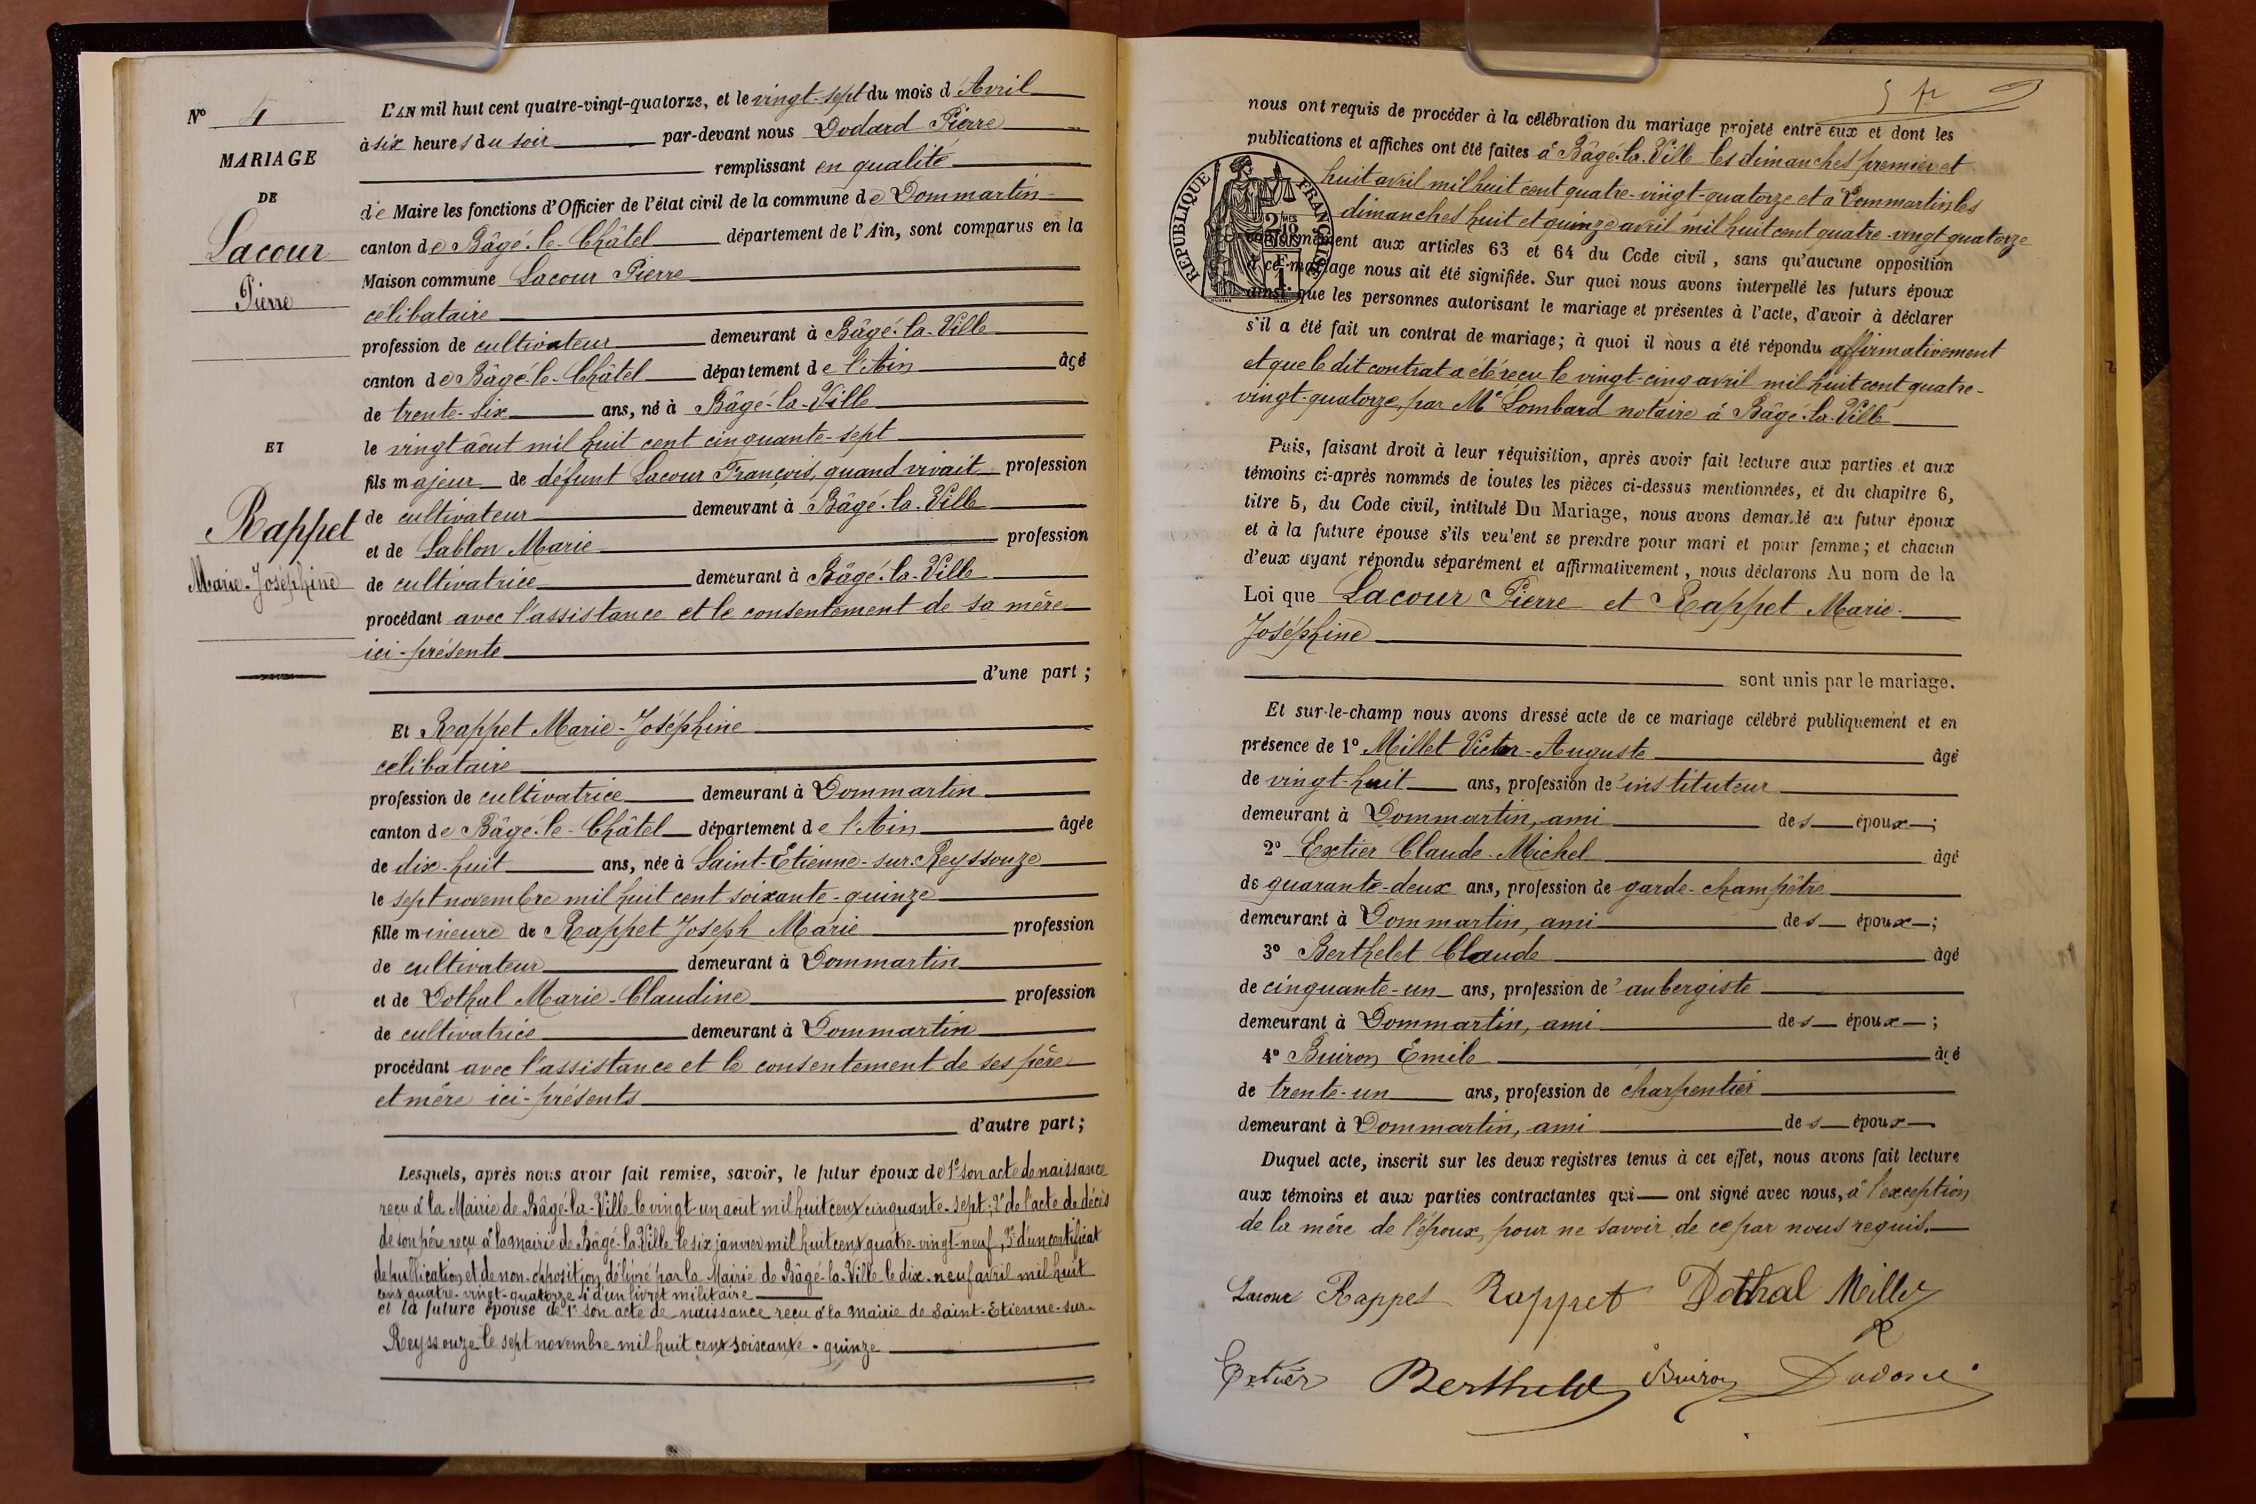 Nº 4
MARIAGE
DE
Lacour
Pierre
ET
Rappet
Marie-Joséphine
L'AN mil huit cent quatre-vingt-quatorze, et le vingt-sept du mois d'Avril
à six heures du soir par-devant nous Dodard Pierre
remplissant en qualité
de Maire les fonctions d'Officier de l'état civil de la commune de Dommartin
canton de Bâgé-le-Châtel département de l'Ain, sont comparus en la
Maison commune Lacour Pierre
célibataire
profession de cultivateur demeurant à Bâgé-la-Ville
canton de Bâgé-le-Châtel département de l'Ain âgé
de trente-six ans, né à Bâgé-la-Ville
le vingt août mil huit cent cinquante-sept
fils majeur de défunt Lacour François, quand vivait profession
de cultivateur demeurant à Bâgé-la-Ville
et de Sablon Marie profession
de cultivatrice demeurant à Bâgé-la-Ville
procédant avec l'assistance et le consentement de sa mère
ici-présente
d'une part ;
Et Rappet Marie-Joséphine
célibataire
profession de cultivatrice demeurant à Dommartin
canton de Bâgé-le-Châtel département de l'Ain âgée
de dix-huit ans, née à Saint-Etienne-sur-Reyssouze
le sept novembre mil huit cent soixante-quinze
fille mineure de Rappet Joseph Marie profession
de cultivateur demeurant à Dommartin
et de Dothal Marie-Claudine profession
de cultivatrice demeurant à Dommartin
procédant avec l'assistance et le consentement de ses père
et mère ici-présents
d'autre part ;
Lesquels, après nous avoir fait remise, savoir, le futur époux de 1º son acte de naissance
reçu à la Mairie de Bâgé-la-Ville le vingt-un août mil huit cent cinquante-sept ; 2º de l'acte de décès
de son père reçu à la mairie de Bâgé-la-Ville le six janvier mil huit cent quatre-vingt-neuf, 3º d'un certificat
de publication et de non-opposition délivré par la Mairie de Bâgé-la-Ville le dix-neuf avril mil huit
cent quatre-vingt-quatorze 4º d'un livret militaire
et la future épouse de 1º son acte de naissance reçu à la mairie de Saint-Etienne-sur-
Reyssouze le sept novembre mil huit cent soixante-quinze
nous ont requis de procéder à la célébration du mariage projeté entre eux et dont les
publications et affiches ont été faites à Bâgé-la-Ville les dimanches premier et
huit avril mil huit cent quatre-vingt-quatorze et à Dommartin les
dimanches huit et quinze avril mil huit cent quatre-vingt-quatorze
RÉPUBLIQUE FRANÇAISE
conformément aux articles 63 et 64 du Code civil, sans qu'aucune opposition
à ce mariage nous ait été signifiée. Sur quoi nous avons interpellé les futurs époux
ainsi que les personnes autorisant le mariage et présentes à l'acte, d'avoir à déclarer
s'il a été fait un contrat de mariage; à quoi il nous a été répondu affirmativement
et que le dit contrat a été reçu le vingt-cinq avril mil huit cent quatre-
vingt-quatorze, par Me Lombard notaire à Bâgé-la-Ville
Puis, faisant droit à leur réquisition, après avoir fait lecture aux parties et aux
témoins ci-après nommés de toutes les pièces ci-dessus mentionnées, et du chapitre 6,
titre 5, du Code civil, intitulé Du Mariage, nous avons demandé au futur époux
et à la future épouse s'ils veulent se prendre pour mari et pour femme; et chacun
d'eux ayant répondu séparément et affirmativement, nous déclarons Au nom de la
Loi que Lacour Pierre et Rappet Marie-
Joséphine
sont unis par le mariage.
Et sur-le-champ nous avons dressé acte de ce mariage célébré publiquement et en
présence de 1º Millet Victor-Auguste âgé
de vingt-huit ans, profession de instituteur
demeurant à Dommartin, ami des époux ;
2º Extier Claude-Michel âgé
de quarante-deux ans, profession de garde-champêtre
demeurant à Dommartin, ami des époux ;
3º Berthelet Claude âgé
de cinquante-un ans, profession d'aubergiste
demeurant à Dommartin, ami des époux ;
4º Buiron Emile âgé
de trente-un ans, profession de charpentier
demeurant à Dommartin, ami des époux
Duquel acte, inscrit sur les deux registres tenus à cet effet, nous avons fait lecture
aux témoins et aux parties contractantes qui ont signé avec nous, à l'exception
de la mère de l'époux, pour ne savoir, de ce par nous requis.
Lacour Rappet Rappet Dothal Millet
Extier Berthelet Buiron Dodard